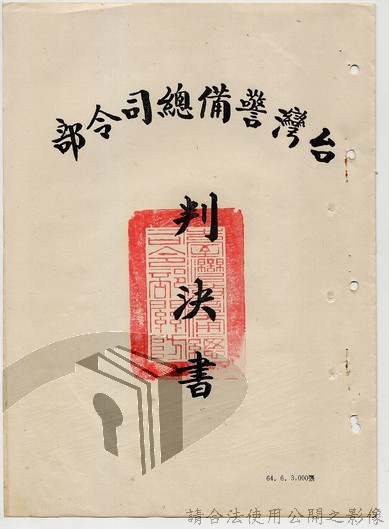 台灣警備總司令部
判決書
64. 6. 3,000張
請合法使用公開之影像